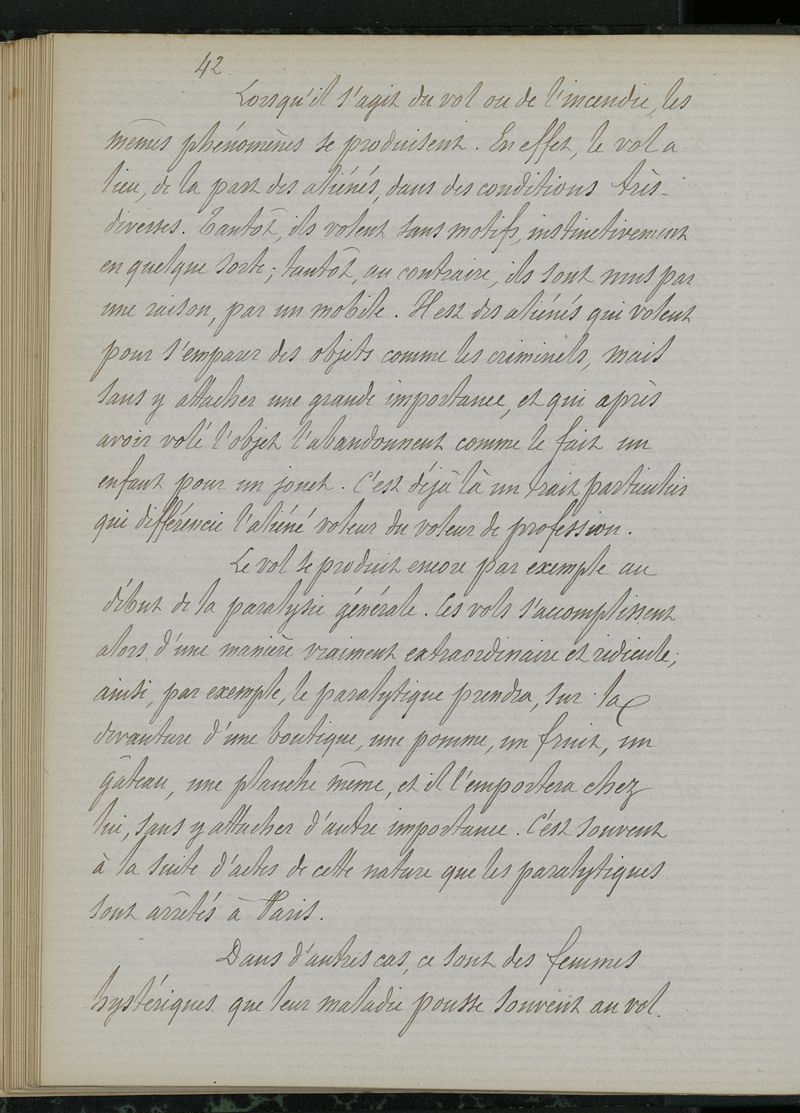 42.
Lorsqu'il s'agit du vol ou de l'incendie, les
mêmes phénomènes se produisent. En effet, le vol a
lieu, de la part des aliénés, dans des conditions très
diverses. Tantôt, ils volent sans motifs, instinctivement
en quelque sorte; tantôt, au contraire, ils sont mus par
une raison, par un mobile. Il est des aliénés qui volent
pour s'emparer des objets comme les criminels, mais
sans y attacher une grande importance, et qui après
avoir volé l'objet l'abandonnent comme le fait un
enfant pour un jouet. C'est déjà là un trait particulier
qui différencie l'aliéné voleur du voleur de profession.
Le vol se produit encore par exemple au
début de la paralysie générale. Ces vols s'accomplissent
alors d'une manière vraiment extraordinaire et ridicule;
ainsi, par exemple, le paralytique prendra, sur la
devanture d'une boutique, une pomme, un fruit, un
gâteau, une planche même, et il l'emportera chez
lui, sans y attacher d'autre importance. C'est souvent
à la suite d'actes de cette nature que les paralytiques
sont arrêtés à Paris.
Dans d'autres cas, ce sont des femmes
hystériques que leur maladie pousse souvent au vol.